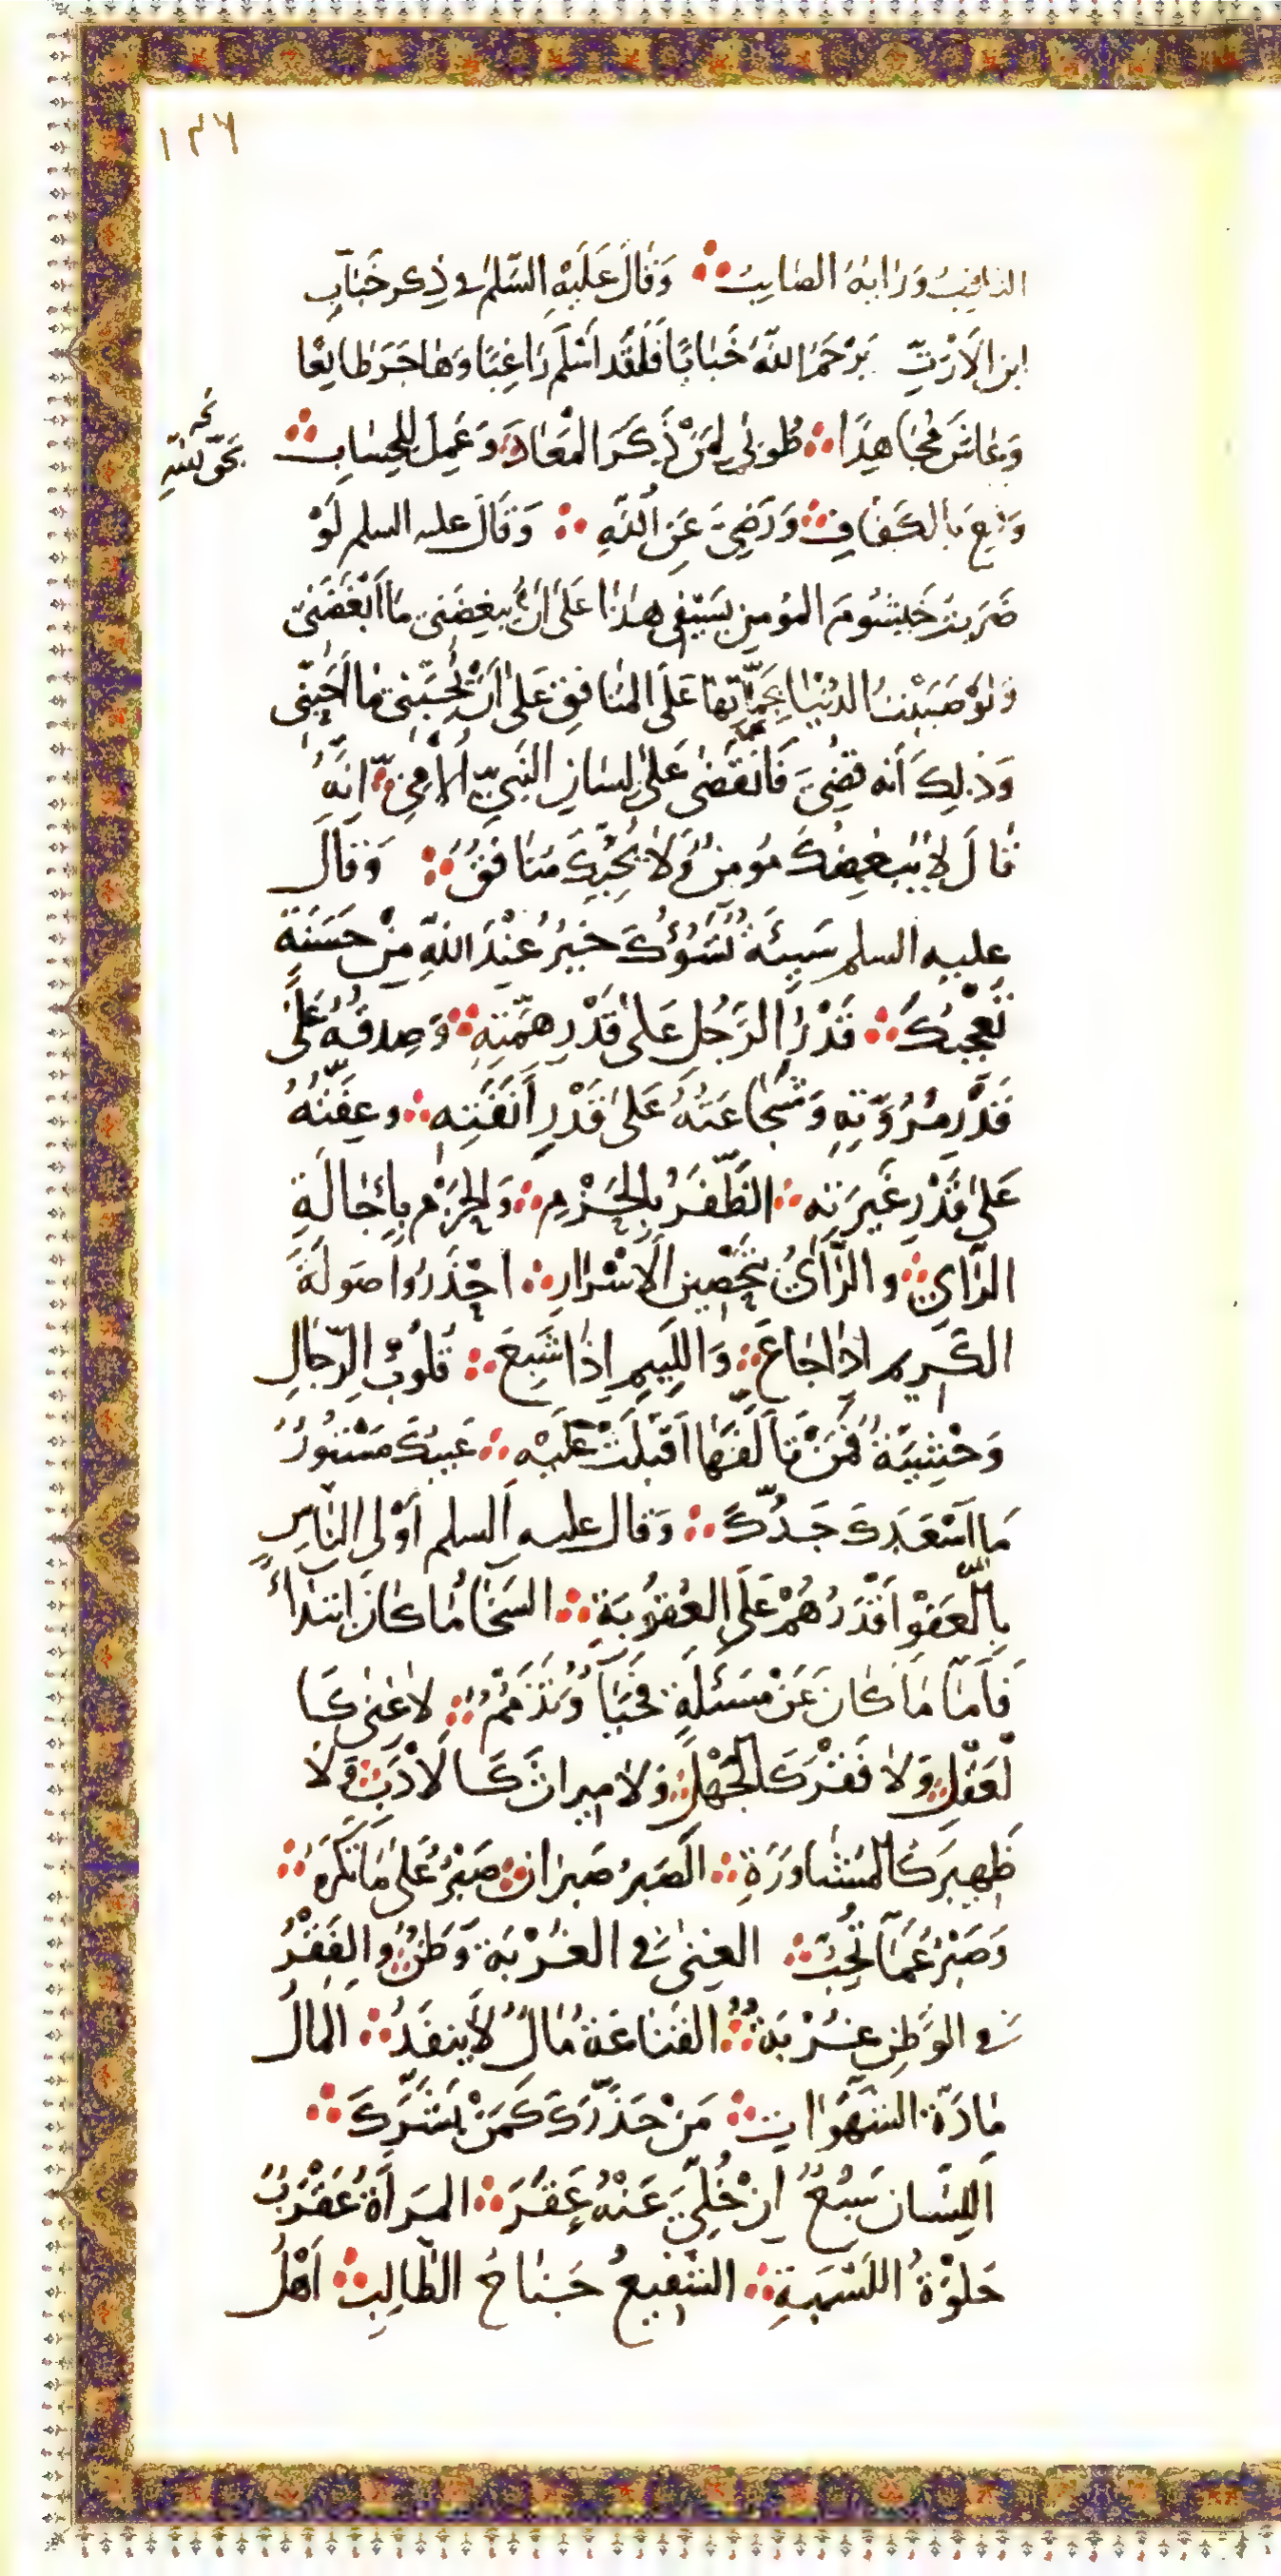 ١٣٦
الثاقب وَرَايهُ الصَايبُ وَقالَ عَلَيْهِ السَّلمُ في ذِكر خَبّابِ
ابن الاَرَتِّ يَرْحَمُ اللّهُ خَبّابًا فَلَقَد اَسْلَمَ رَاغِبًا وَهاجَرَ طايِعًا
وَعاشَ مُجَاهِدًا طُوبى لِمَنْ ذَكَرَ المَعادَ وَعَمِلَ للحِسابِ
وَقنِعَ بالكَفافِ وَرَضِيَ عَنِ اللّهِ وَقَالَ عليه السلم لَوْ
ضَرَبتُ خَيشُومَ المومِنِ بسَيْفي هذا عَلى اَنْ يبغِضَني مَا اَبْغَضَني
وَلوْ صَبَبْتُ الدُنْيا بِجَمّاتها عَلَى المنافِق عَلى اَنْ يُحِبَّني مَا اَحَبَّني
وَذلِكَ أنه قضِيَ فَانقَضى عَلى لِسانِ النَبيّ الاُمّيّ انَّهُ
قالَ لا يُبغِضُكَ مومنٌ وَلا يُحِبُّكَ مَنافِقٌ وَقال
عليه السلم سَيِئَةٌ تَسُؤُكَ خيرٌ عِنْدَ اللّهِ مِنْ حَسَنَة
تُعجِبُكَ قَدْرُ الرَجُلِ عَلى قَدْرِ هِمَّتِهِ وَصِدقُهُ عَلَى
قَدْرِ مُرُوَّتِهِ وَشَجاعَتُهُ عَلى قَدْرِ أَنفَتِهِ وعِفَّتُهُ
عَلى قَدْرِ غَيرَتِه الظَّفَرُ بِالحَزْمِ وَالحَزْم بِإِجَالَةِ
الرَّأيِ والرَّأيُ بتَحْصِينِ الاسْرَارِ احْذَرُوا صَولَةَ
الكَريم اذا جَاعَ وَاللَّيِيمِ إِذا شَبِعَ قلُوبُ الرِّجَالِ
وَحْشِيَّةٌ فمَنْ تَأَلَّفَهَا اَقْبَلَتْ عَلَيْهِ عَيبُكَ مَسْتورٌ
مَا اَسْعَدَكَ جَدُّكَ وَقال عليه السلم أوْلى النّاسِ
بِالْعَفوْ اَقْدَرُهُمْ عَلَى العُقُوبَة السَخَا مَا كانَ ابتداءً
فَاَمّا مَا كانَ عَنْ مسَئلةٍ فحَيَاءٌ وَتذَمُّمٌ لا غِنى كَا
لعَقْلِ وَلا فَقْرَ كَالجَهْلِ وَلا مِيراثَ كَالاَدَبِ وَلا
ظَهِيرَ كَالمُشَاورَةِ الصَبرُ صَبرانِ صَبْرٌ عَلى مَا تَكْرَهُ
وَصَبْرٌ عَمّا تُحِبُّ الغِنى في الغُرْبَة وَطَنٌ والفَقْرُ
في الوَطنِ غُرْبَة القَناعَة مَالٌ لا ينفَدُ المَالُ
مادّة الشهَوَات مَنْ حَذَّرَكَ كَمَنْ بَشَّرَكَ
اللِسَان سَبُعٌ اِنْ خُلِّيَ عَنْهُ عَقَرَ المَرأَة عَقْرَبٌ
حَلوْةُ اللَسْبَةِ الشَفِيعُ جَناحُ الطالِبِ اَهْلُ